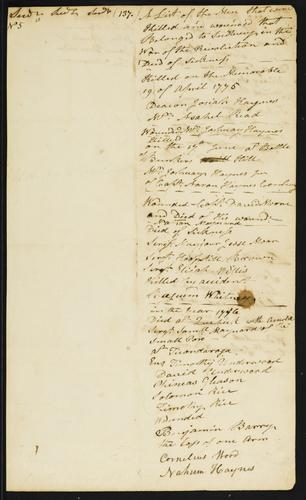 Sud
No 5
137.
A List of the Men that were
Killed and wounded that
Belonged to Sudbury in the
War of the Revolution and
Died of Sickness
Killed on the Memorable
19 of April 1775
Deacon Josiah Haynes
Mr Asahel Read
Wounded Mr Joshua Haynes
Killed
on the 17th June at Battle
of Bunkers Hill
Mr Joshua Haynes Jun
of Capt Aaron Haynes Company
Wounded Capt David Moore
and Died of the wound
Died of Sickness
Sergt Jesse Moore
Sergt Hopestill Brown
Sergt Elijah Willis
Killed by accident
Whitney
in the Year 1776
Died at with Arnold
Sergt Saml Maynard of the
Small Pox
at Ticonderoga
Ens Timothy Underwood
David Underwood
Phineas Gleason
Solomon Rice
Timothy Rice
Wounded
Benjamin Barry
the loss of one Arm
Cornelius Wood
Nahum Haynes